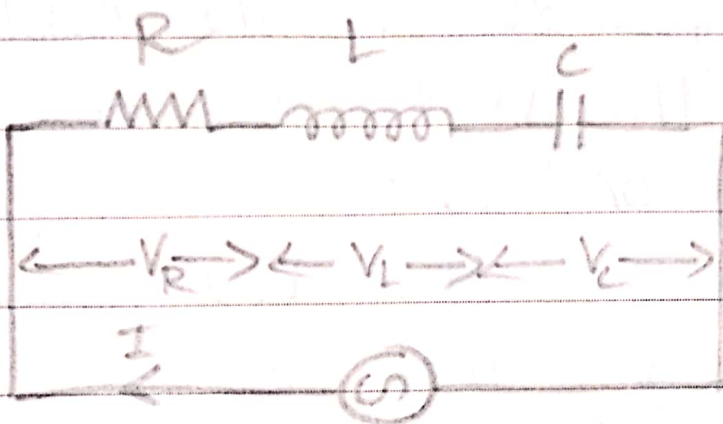 R L C
V_R V_L V_C
I